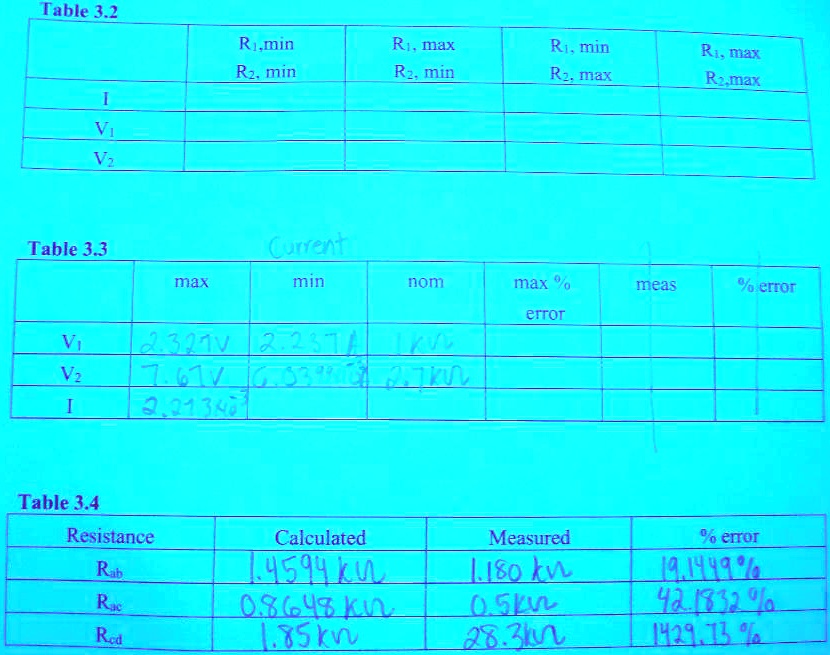 Table 3.2
R1,min R1, max R1, min R1, max
R2, min R2, min R2, max R2,max
I
V1
V2
Table 3.3 Current
max min nom max % meas % error
error
V1 2.327V 2.237A 1kΩ
V2 7.67V 2.7kΩ
I
Table 3.4
Resistance Calculated Measured % error
Rab 1.4594 kΩ 1.180 kΩ 19.1449%
Rac 0.8648 kΩ 0.5kΩ 42.1832%
Rcd 1.85kΩ 28.3kΩ 1429.73 %